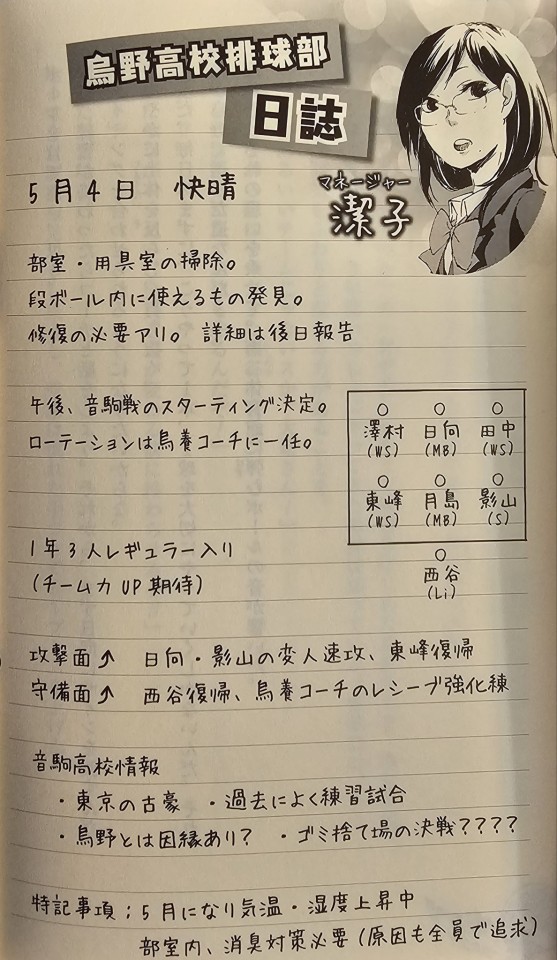 烏野高校排球部
日誌
マネージャー
潔子
5月4日 快晴
部室・用具室の掃除。
段ボール内に使えるもの発見。
修復の必要アリ。 詳細は後日報告
午後、音駒戦のスターティング決定。
ローテーションは烏養コーチに一任。
○ ○ ○
澤村 日向 田中
(WS) (MB) (WS)
○ ○ ○
東峰 月島 影山
(WS) (MB) (S)
○
西谷
(Li)
1年3人レギュラー入り
(チーム力UP期待)
攻撃面↑ 日向・影山の変人速攻、東峰復帰
守備面↑ 西谷復帰、烏養コーチのレシーブ強化練
音駒高校情報
・東京の古豪 ・過去によく練習試合
・烏野とは因縁あり? ・ゴミ捨て場の決戦????
特記事項;5月になり気温・湿度上昇中
部室内、消臭対策必要(原因も全員で追求)